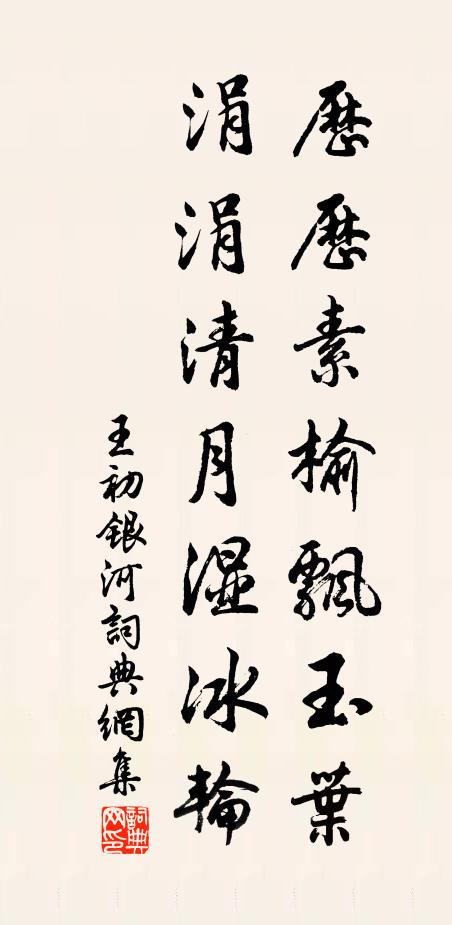 歷歷素榆飄玉葉
涓涓清月濕冰輪
王初銀河詞典網集
詞典网印